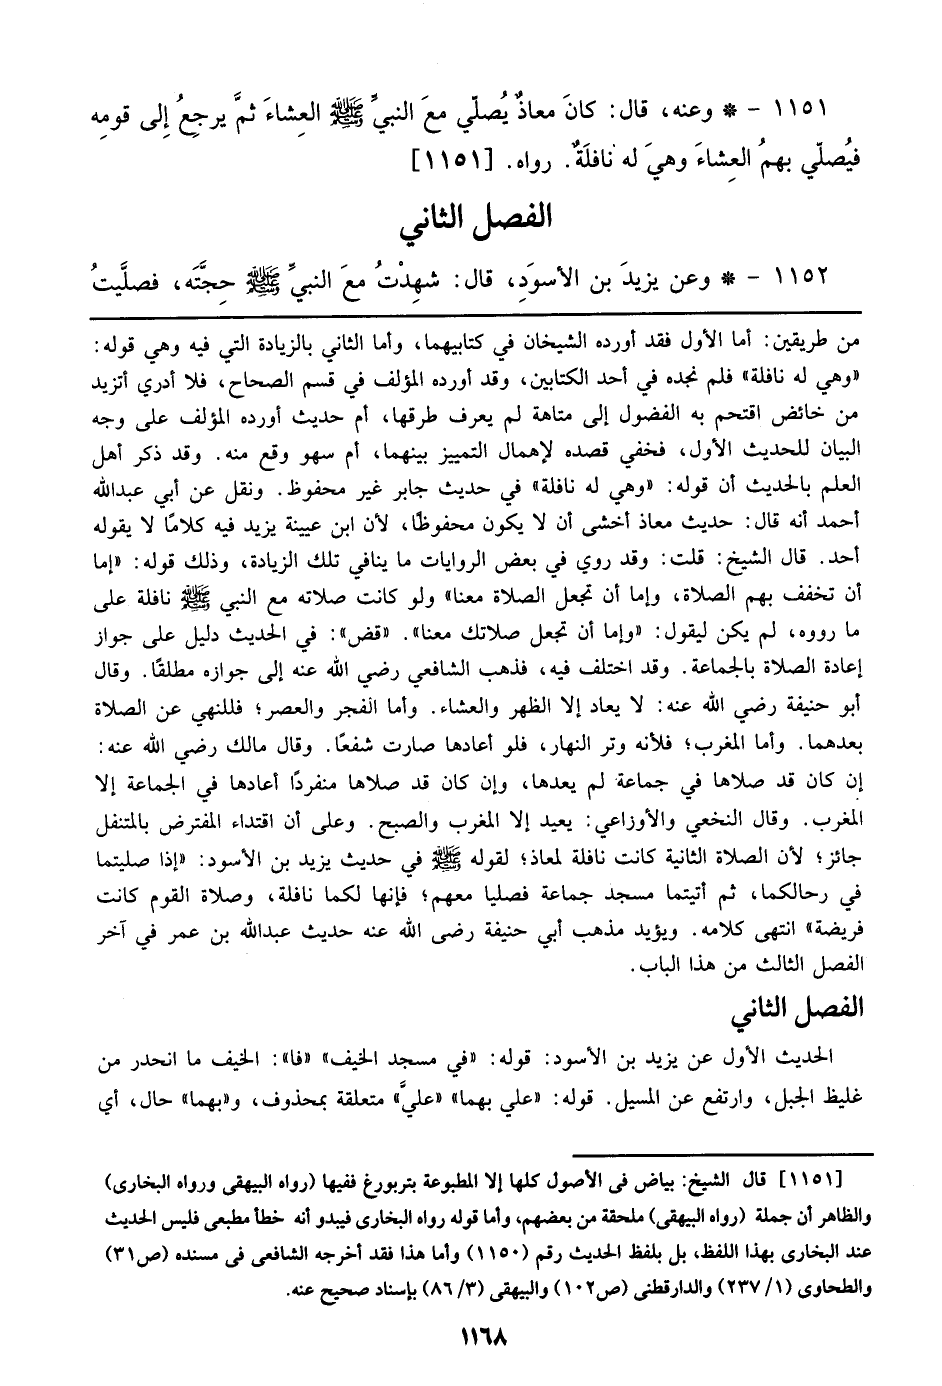 ١١٥١ – * وعنه، قال: كانَ معاذٌ يُصلّي معَ النبيِّ ﷺ العِشاءَ ثمَّ يرجِعُ إِلى قومِه
فيُصلّي بهمُ العشاءَ وهيَ له نافلَةٌ. رواه. [١١٥١]
الفصل الثاني
١١٥٢ – * وعن يزيدَ بن الأسوَدِ، قال: شهِدْتُ معَ النبيِّ ﷺ حِجَّتَه، فصلَّيتُ
من طريقين: أما الأول فقد أورده الشيخان في كتابيهما، وأما الثاني بالزيادة التي فيه وهي قوله:
«وهي له نافلة» فلم نجده في أحد الكتابين، وقد أورده المؤلف في قسم الصحاح، فلا أدري أتزيد
من خائض اقتحم به الفضول إلى متاهة لم يعرف طرقها، أم حديث أورده المؤلف على وجه
البيان للحديث الأول، فخفي قصده لإهمال التمييز بينهما، أم سهو وقع منه. وقد ذكر أهل
العلم بالحديث أن قوله: «وهي له نافلة» في حديث جابر غير محفوظ. ونقل عن أبي عبدالله
أحمد أنه قال: حديث معاذ أخشى أن لا يكون محفوظًا، لأن ابن عيينة يزيد فيه كلامًا لا يقوله
أحد. قال الشيخ: قلت: وقد روي في بعض الروايات ما ينافي تلك الزيادة، وذلك قوله: «إما
أن تخفف بهم الصلاة، وإما أن تجعل الصلاة معنا» ولو كانت صلاته مع النبي ﷺ نافلة على
ما رووه، لم يكن ليقول: «وإما أن تجعل صلاتك معنا». «قض»: في الحديث دليل على جواز
إعادة الصلاة بالجماعة. وقد اختلف فيه، فذهب الشافعي رضي الله عنه إلى جوازه مطلقًا. وقال
أبو حنيفة رضي الله عنه: لا يعاد إلا الظهر والعشاء. وأما الفجر والعصر؛ فللنهي عن الصلاة
بعدهما. وأما المغرب؛ فلأنه وتر النهار، فلو أعادها صارت شفعًا. وقال مالك رضي الله عنه:
إن كان قد صلاها في جماعة لم يعدها، وإن كان قد صلاها منفردًا أعادها في الجماعة إلا
المغرب. وقال النخعي والأوزاعي: يعيد إلا المغرب والصبح. وعلى أن اقتداء المفترض بالمتنفل
جائز؛ لأن الصلاة الثانية كانت نافلة لمعاذ؛ لقوله ﷺ في حديث يزيد بن الأسود: «إذا صليتما
في رحالكما، ثم أتيتما مسجد جماعة فصليا معهم؛ فإنها لكما نافلة، وصلاة القوم كانت
فريضة» انتهى كلامه. ويؤيد مذهب أبي حنيفة رضى الله عنه حديث عبدالله بن عمر في آخر
الفصل الثالث من هذا الباب.
الفصل الثاني
الحديث الأول عن يزيد بن الأسود: قوله: «في مسجد الخيف» «فا»: الخيف ما انحدر من
غليظ الجبل، وارتفع عن المسيل. قوله: «علي بهما» «عليَّ» متعلقة بمحذوف، و«بهما» حال، أي
[١١٥١] قال الشيخ: بياض فى الأصول كلها إلا المطبوعة بتربورغ ففيها (رواه البيهقى ورواه البخارى)
والظاهر أن جملة (رواه البيهقى) ملحقة من بعضهم، وأما قوله رواه البخارى فيبدو أنه خطأ مطبعى فليس الحديث
عند البخارى بهذا اللفظ، بل بلفظ الحديث رقم (١١٥٠) وأما هذا فقد أخرجه الشافعى فى مسنده (ص٣١)
والطحاوى (١/ ٢٣٧) والدارقطنى (ص١٠٢) والبيهقى (٣/ ٨٦) بإسناد صحيح عنه.
١١٦٨